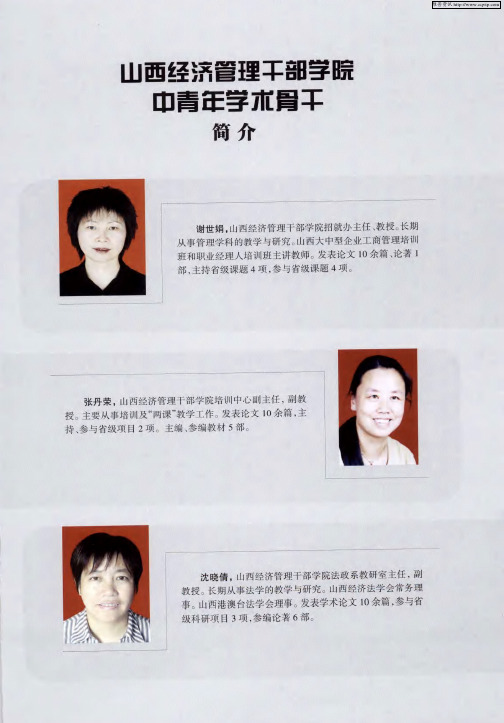 维普资讯 http://www.cqvip.com
山西经济管理干部学院
中青年学术骨干
简介
谢世娟,山西经济管理干部学院招就办主任、教授。长期
从事管理学科的教学与研究。山西大中型企业工商管理培训
班和职业经理人培训班主讲教师。发表论文10余篇、论著1
部,主持省级课题4项,参与省级课题4项。
张丹荣,山西经济管理干部学院培训中心副主任,副教
授。主要从事培训及“两课”教学工作。发表论文10余篇,主
持、参与省级项目2项。主编、参编教材5部。
沈晓倩,山西经济管理干部学院法政系教研室主任,副
教授。长期从事法学的教学与研究。山西经济法学会常务理
事。山西港澳台法学会理事。发表学术论文10余篇,参与省
级科研项目3项,参编论著6部。